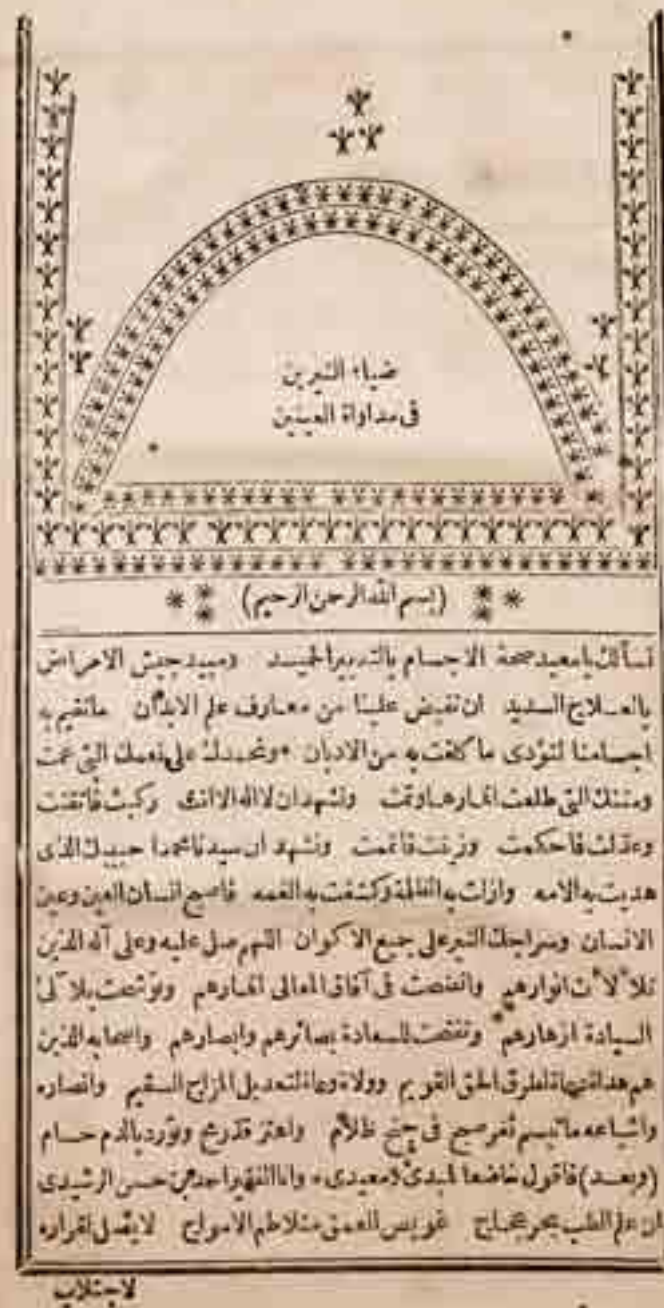 ضياء النيرين
فى مداواة العينين
(بسم الله الرحمن الرحيم)
نسألك يا معيد صحة الاجسام بالتدبير الحميد ومبيد جيش الامراض
بالعلاج السديد ان تفيض علينا من معارف علم الابدان ما نقيم به
اجسامنا لنؤدى ما كلفت به من الاديان ونحمدك على نعمك التى عمت
ومننك التى طلعت اقمارها وتمت ونشهد ان لا اله الا انت ركبت فاتقنت
وعدلت فاحكمت وزينت فاتممت ونشهد ان سيدنا محمدا حبيبك الذى
هديت به الامه وازلت به الظلمة وكشفت به الغمه فاصبح انسان العين وعين
الانسان وسراجك النير على جميع الاكوان اللهم صل عليه وعلى آله الذين
تلألأت انوارهم واتضحت فى آفاق المعالى اقمارهم وتوشحت بلآلئ
السيادة ازهارهم وتفتحت للسعادة بصائرهم وابصارهم واصحابه الذين
هم هداتنا لطرق الحق القويم وولاة لتعديل المزاج السقيم وانصاره
واشياعه ما تبسم ثغر صبح فى جنح ظلام واهتز قد رمح وتورد بالدم حسام
(وبعد) فاقول خاضعا لمبدئى ومعيدى وانا الفقير احمد بن حسن الرشيدى
ان علم الطب بحر عجاج غويص العمق متلاطم الامواج لا يقراره
لاجتلاب